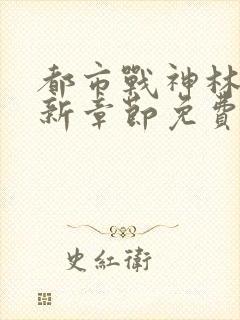 都市戰神林
新章節免費
史紅衛